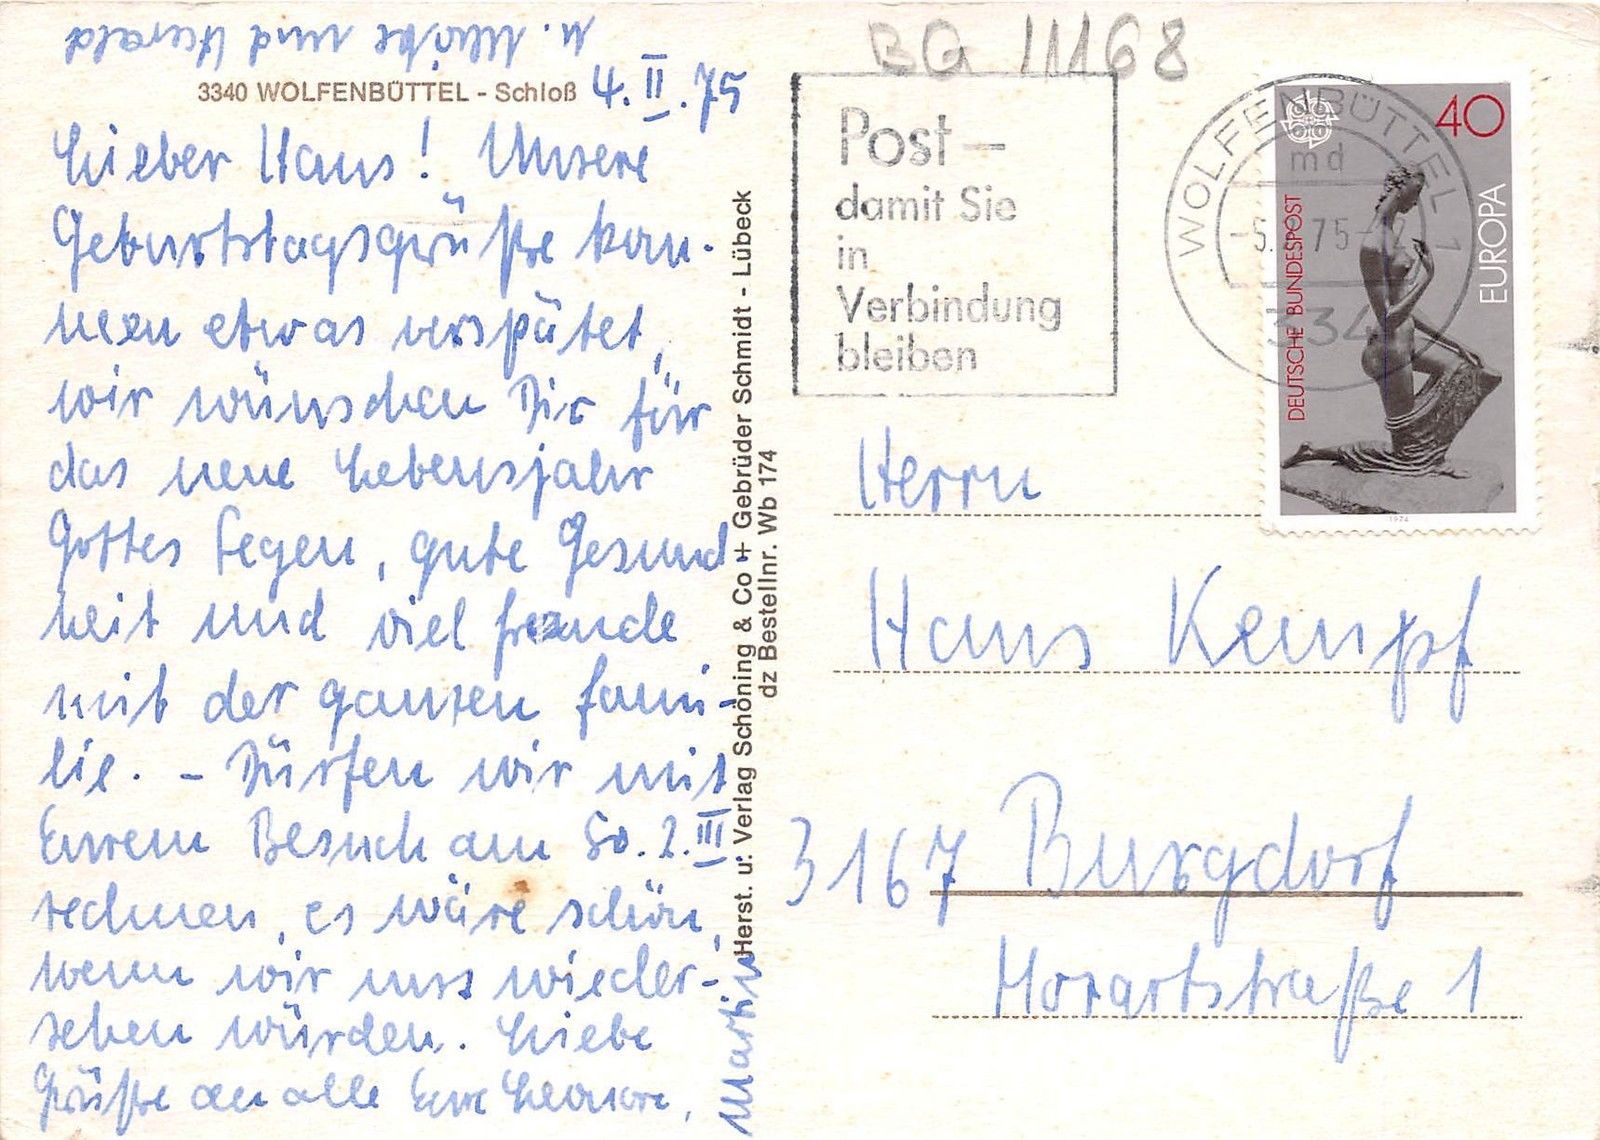 3340 WOLFENBÜTTEL - Schloß 4. II. 75
Lieber Hans! Unsere
Geburtstagsgrüße kom-
men etwas verspätet,
wir wünschen Dir für
das neue Lebensjahr
Gottes Segen, gute Gesund
heit und viel freude
mit der ganzen fami-
lie. - Dürfen wir mit
Eurem Besuch am So. 2. III
rechnen, es wäre schön,
wenn wir uns wieder-
sehen würden. Liebe
Grüße an alle Eure Leonore,
Martin
u. und
Herst. u. Verlag Schöning & Co + Gebrüder Schmidt - Lübeck
dz Bestellnr. Wb 174
BG 11168
Post -
damit Sie
in
Verbindung
bleiben
WOLFENBÜTTEL 1
md
-5.2.75-
334
40
DEUTSCHE BUNDESPOST
EUROPA
1974
Herrn
Hans Kempf
3167 Burgdorf
Mozartstraße 1